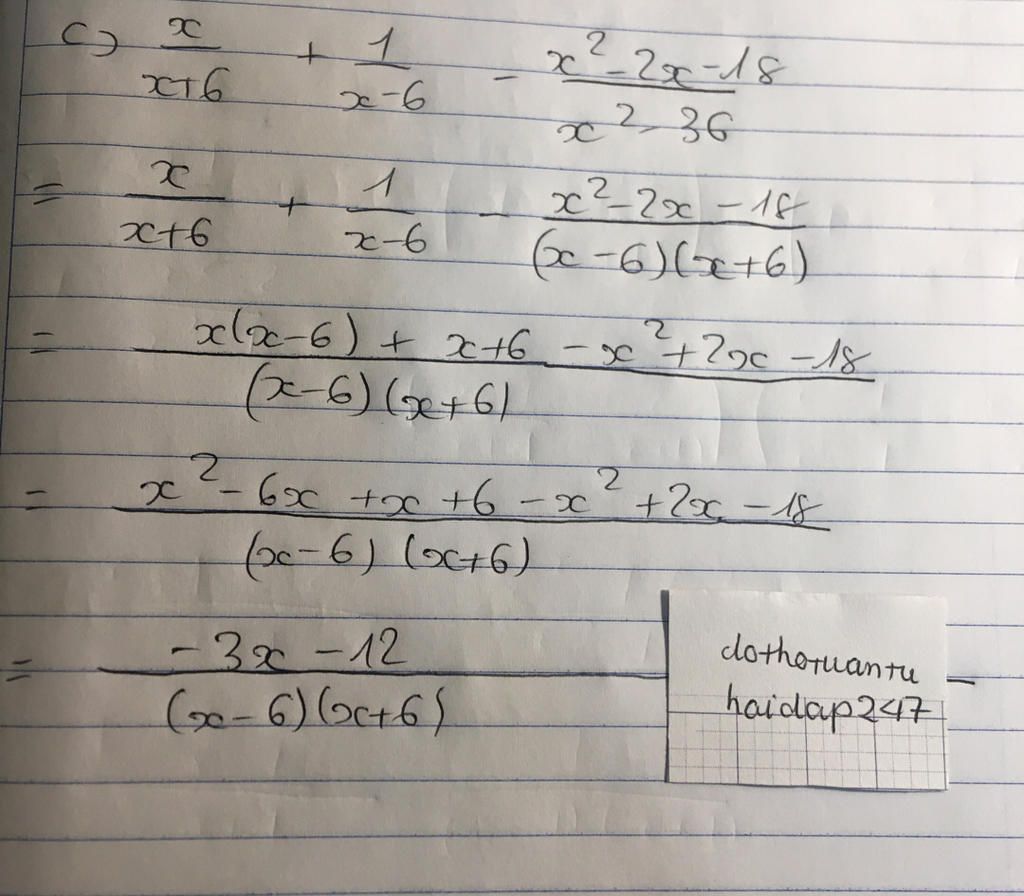 c) x/(x+6) + 1/(x-6) - (x²-2x-18)/(x²-36)
= x/(x+6) + 1/(x-6) - (x²-2x-18)/((x-6)(x+6))
= (x(x-6) + x+6 - x²+2x-18)/((x-6)(x+6))
= (x²-6x+x+6-x²+2x-18)/((x-6)(x+6))
= (-3x-12)/((x-6)(x+6))
dothotuantu
haidap247